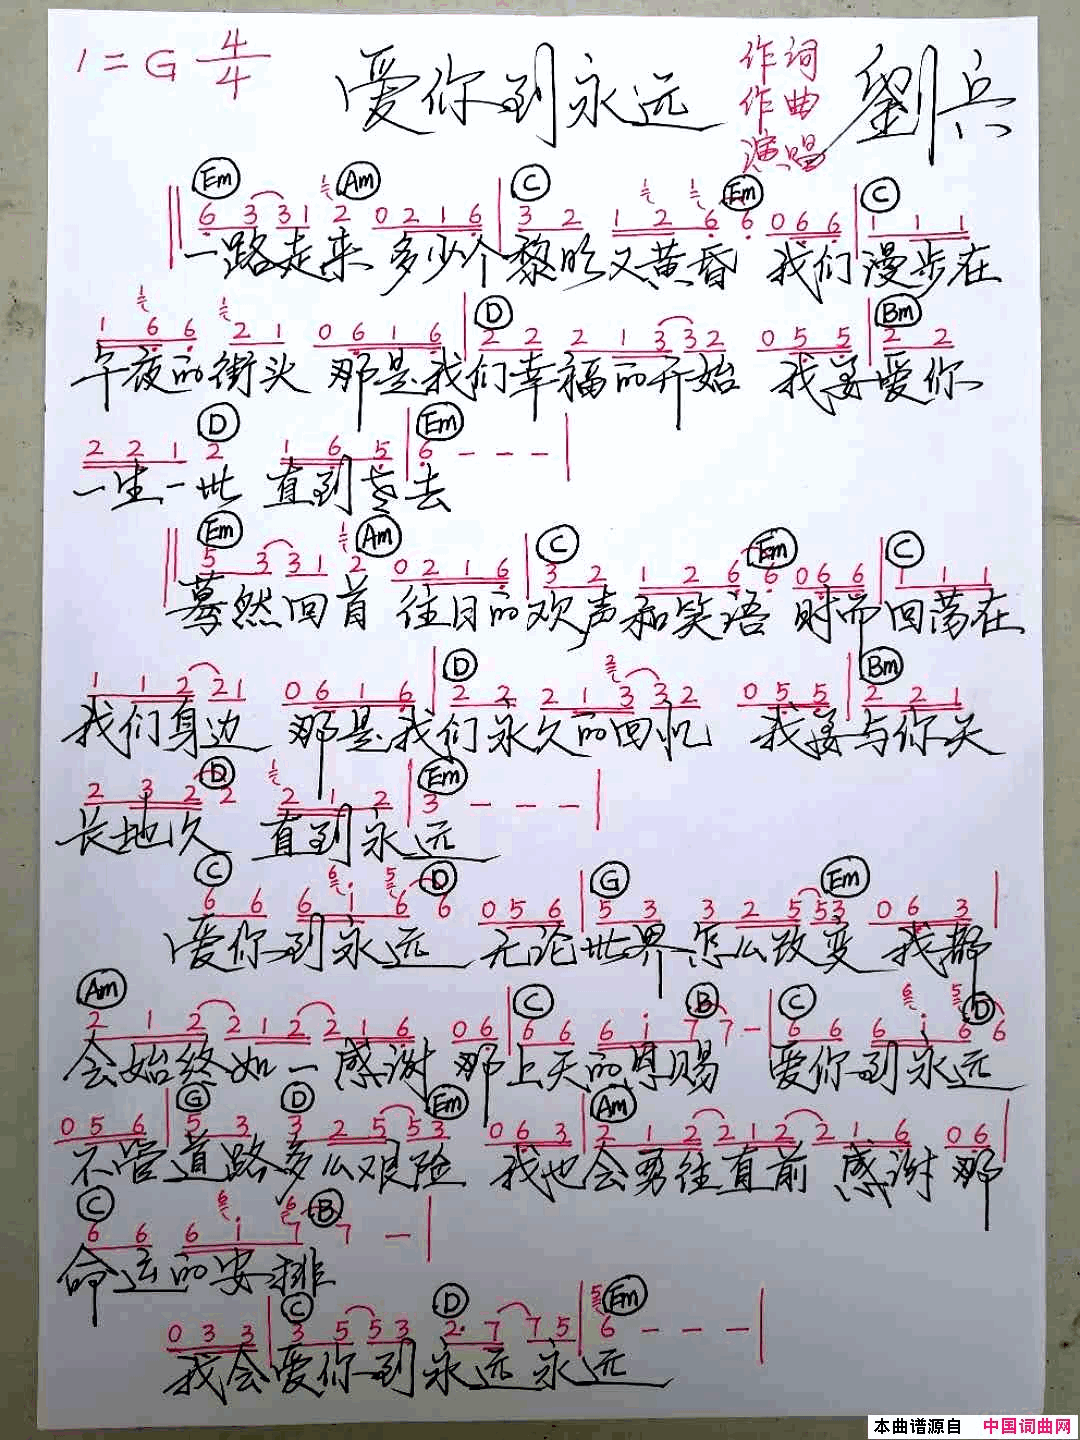 1=G 4/4 爱你到永远 作词 作曲 演唱 劉兵
Em Am C Em C
6 3 3 1 2 0 2 1 6 3 2 1 2 6 6 0 6 6 1 1 1
一路走来 多少个黎明又黄昏 我们漫步在
D Bm
1 6 6 2 1 0 6 1 6 2 2 2 1 3 3 2 0 5 5 2 2
午夜的街头 那是我们幸福的开始 我要爱你
D Em
2 2 1 2 1 6 5 6 - - -
一生一世 直到老去
Em Am C Em C
5 3 3 1 2 0 2 1 6 3 2 1 2 6 6 0 6 6 1 1 1
蓦然回首 往日的欢声和笑语 时而回荡在
D Bm
1 1 2 2 1 0 6 1 6 2 2 2 1 3 3 2 0 5 5 2 2 1
我们身边 那是我们永久的回忆 我要与你天
D Em
2 3 2 2 2 1 2 3 - - -
长地久 直到永远
C D G Em
6 6 6 i 6 6 0 5 6 5 3 3 2 5 5 3 0 6 3
爱你到永远 无论世界怎么改变 我都
Am C B C D
2 1 2 2 1 2 2 1 6 0 6 6 6 6 i 7 7 - 6 6 6 i 6 6
会始终如一 感谢那上天的恩赐 爱你到永远
G D Em Am
0 5 6 5 3 3 2 5 5 3 0 6 3 2 1 2 2 1 2 2 1 6 0 6
不管道路多么艰险 我也会勇往直前 感谢那
C B
6 6 6 i 7 7 -
命运的安排
C D Em
0 3 3 3 5 5 3 2· 7 7 5 6 - - -
我会爱你到永远永远
本曲谱源自 中国词曲网